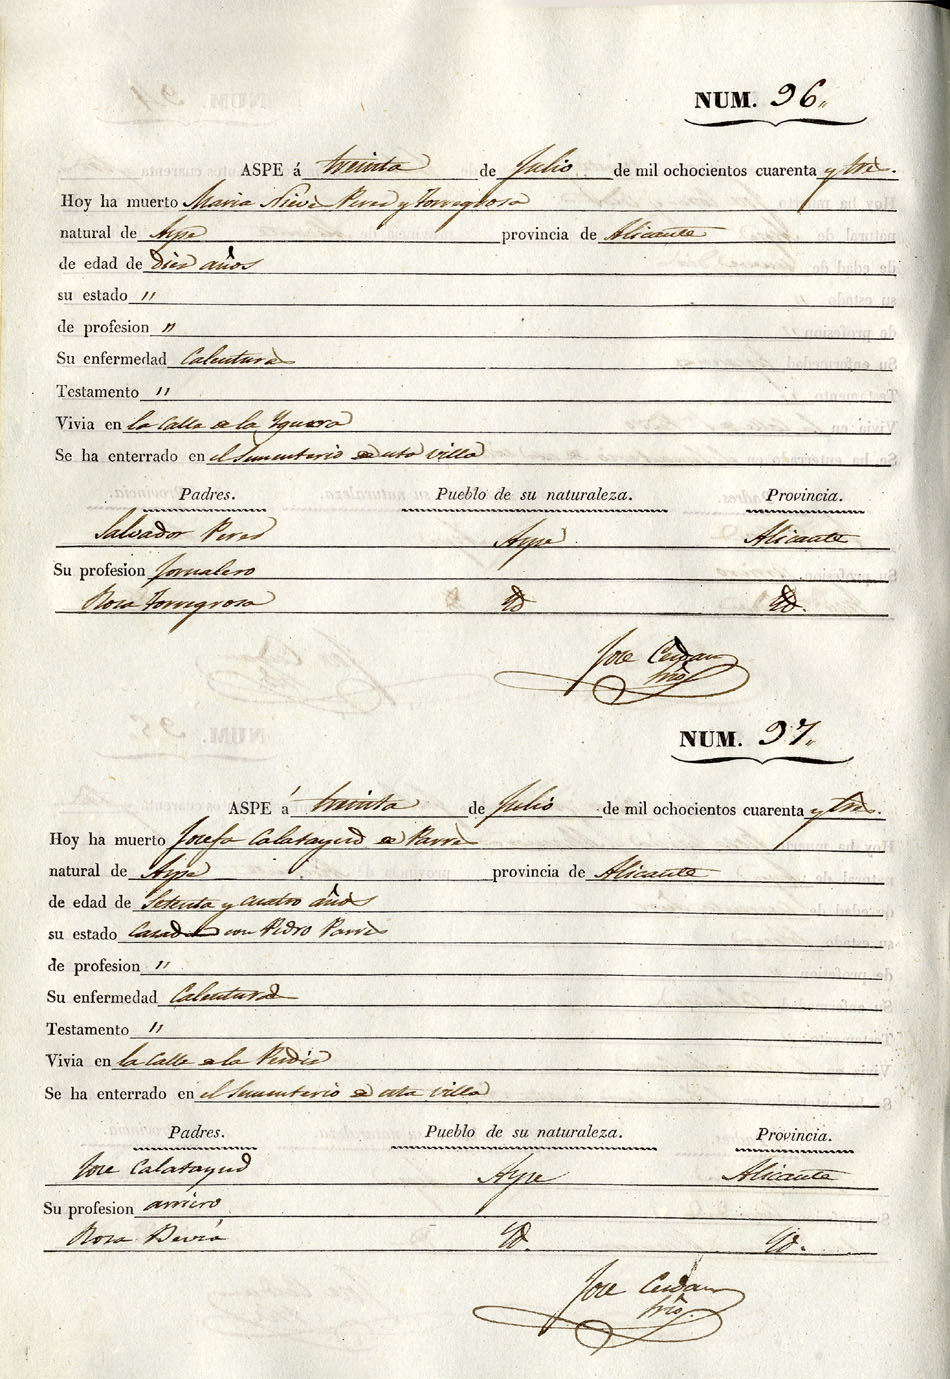 NUM. 96.
ASPE á treinta de Julio de mil ochocientos cuarenta y tres.
Hoy ha muerto Maria Nieve Perez y Torregrosa
natural de Aspe provincia de Alicante
de edad de Diez años
su estado "
de profesion "
Su enfermedad Calentura
Testamento "
Vivia en la Calle de la Yguera
Se ha enterrado en el Sementerio de esta villa
Padres. Pueblo de su naturaleza. Provincia.
Salvador Perez Aspe Alicante
Su profesion Jornalero
Rosa Torregrosa Yd Yd.
Jose Cerdan
NUM. 97.
ASPE á treinta de Julio de mil ochocientos cuarenta y tres.
Hoy ha muerto Josefa Calatayud de Parres
natural de Aspe provincia de Alicante
de edad de Setenta y cuatro años
su estado Casada con Pedro Parres
de profesion "
Su enfermedad Calentura
Testamento "
Vivia en la Calle de la Perdiz
Se ha enterrado en el Sementerio de esta villa
Padres. Pueblo de su naturaleza. Provincia.
Jose Calatayud Aspe Alicante
Su profesion arriero
Rosa Yd. Yd.
Jose Cerdan